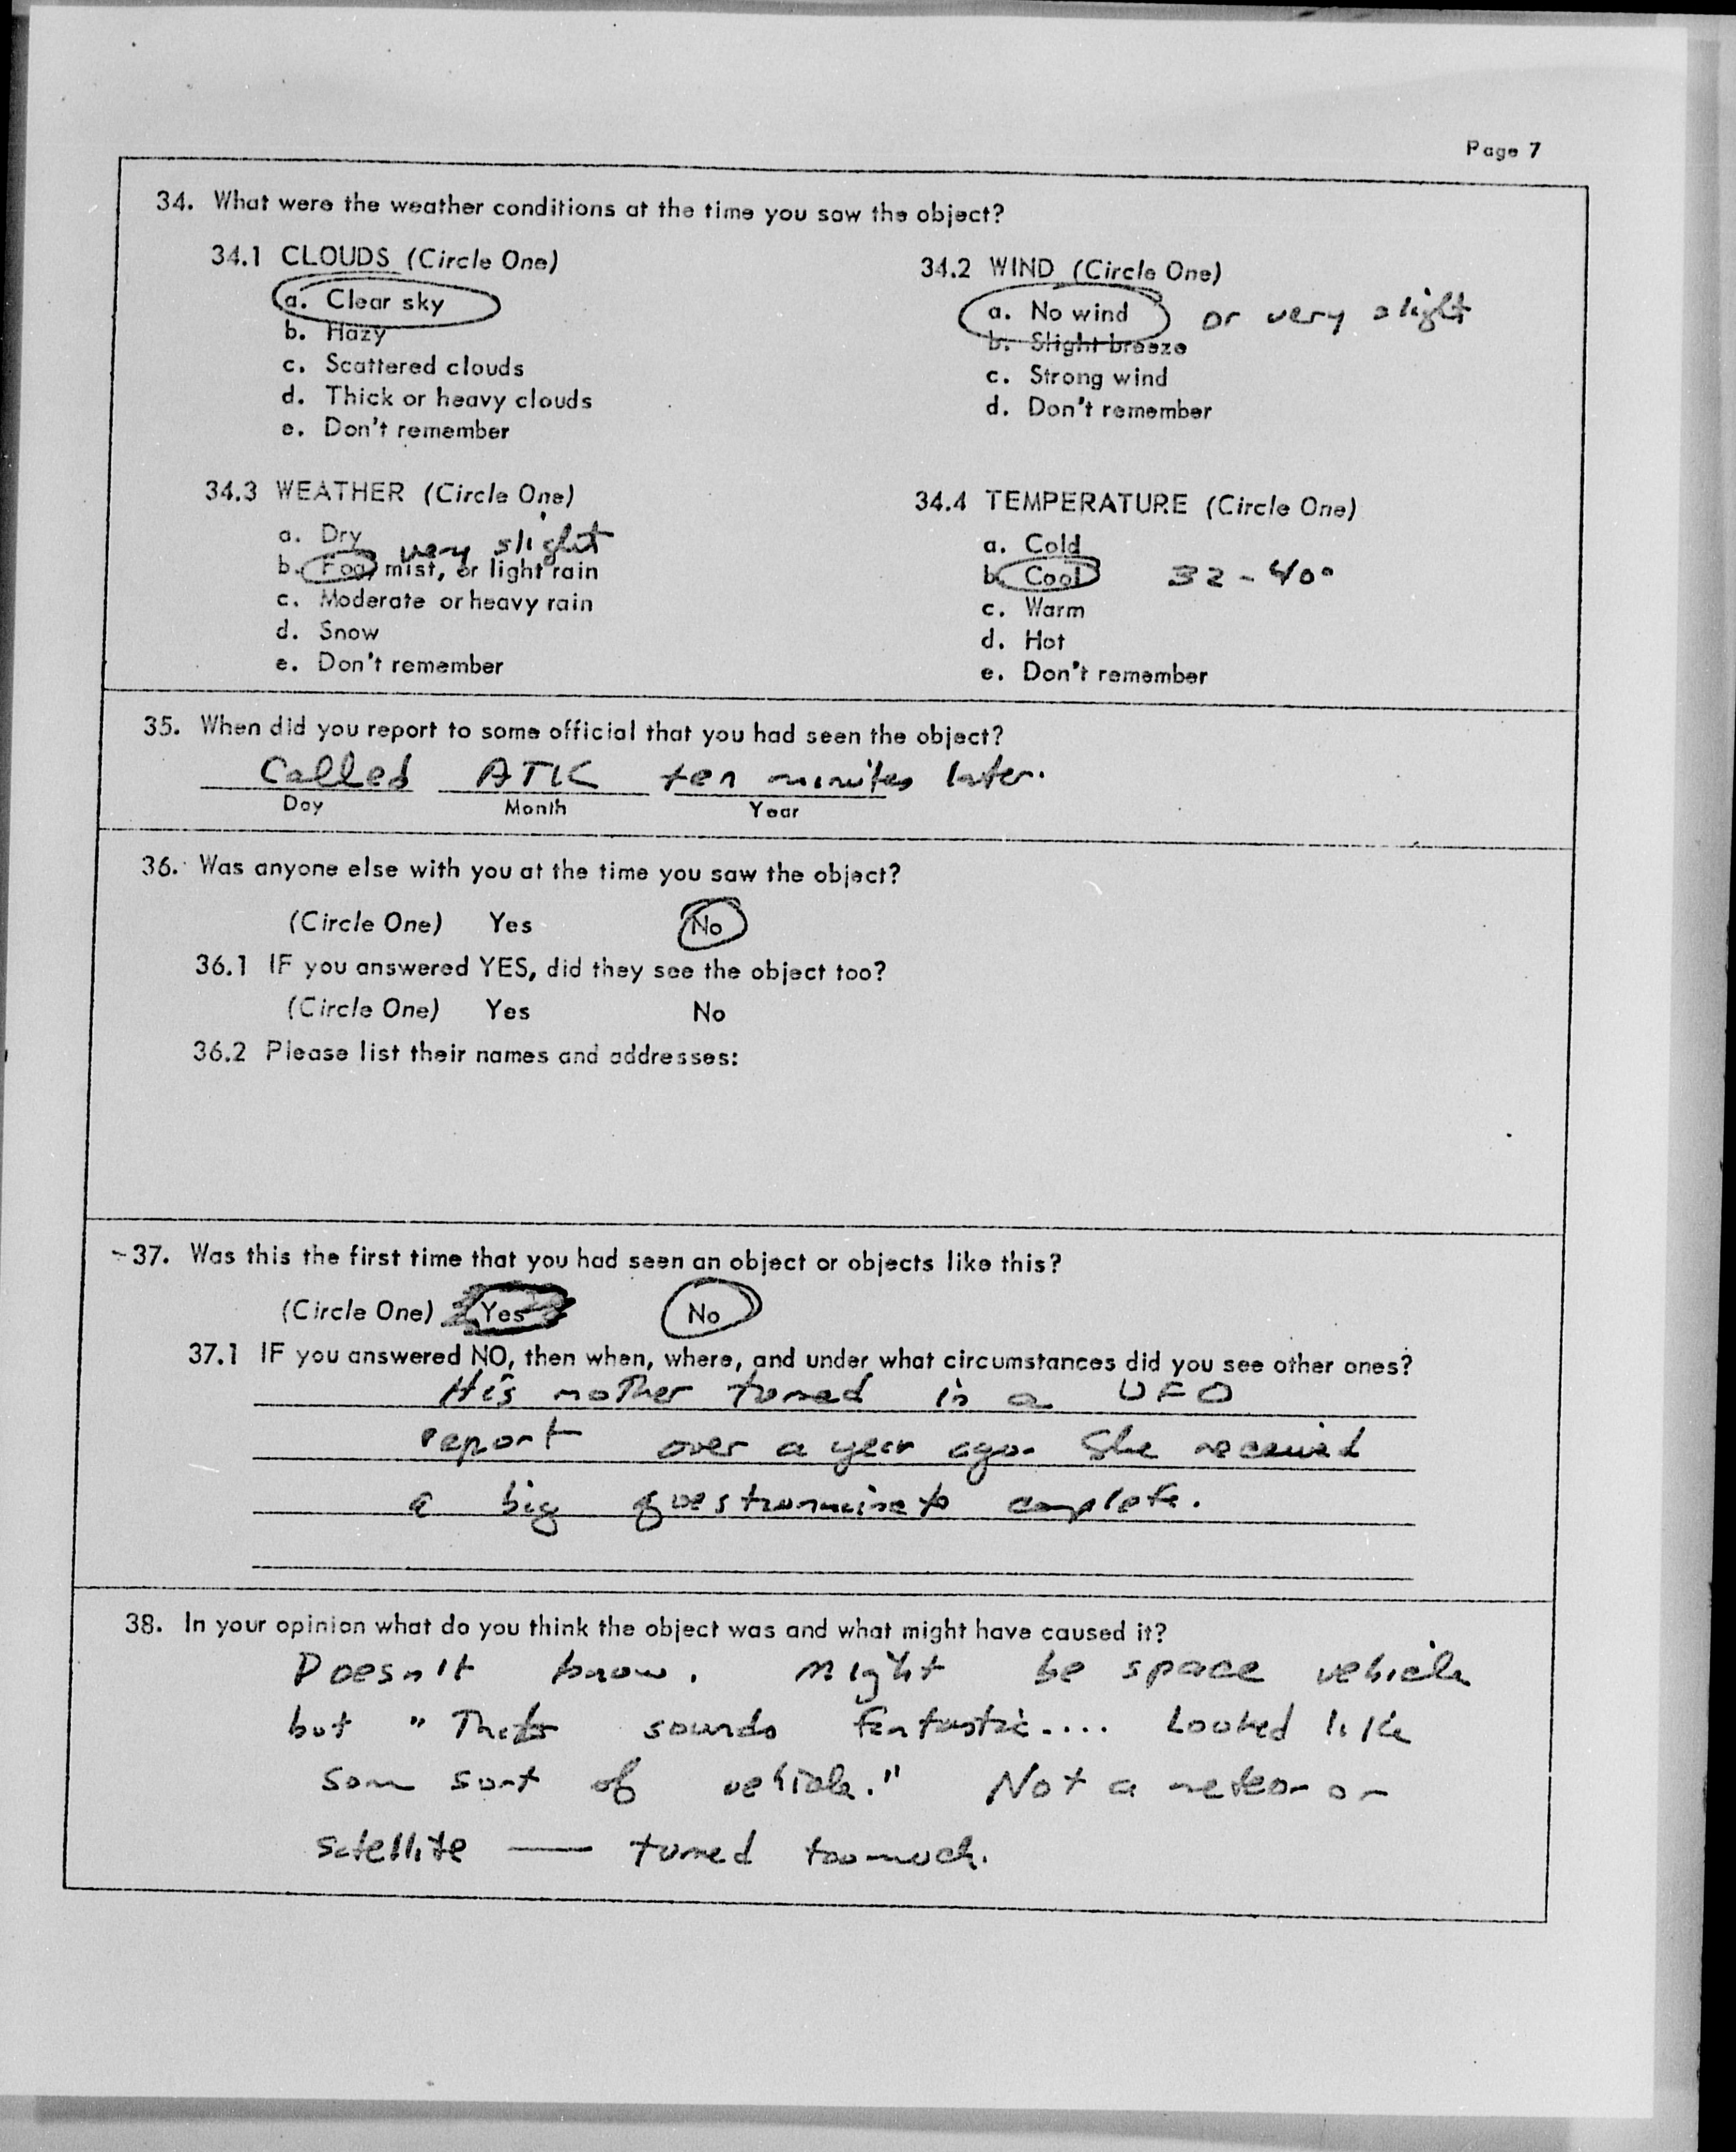 Page 7
34. What were the weather conditions at the time you saw the object?
34.1 CLOUDS (Circle One)
a. Clear sky
b. Hazy
c. Scattered clouds
d. Thick or heavy clouds
e. Don't remember
34.2 WIND (Circle One)
a. No wind or very slight
b. Slight breeze
c. Strong wind
d. Don't remember
34.3 WEATHER (Circle One)
a. Dry
very slight
b. Fog, mist, or light rain
c. Moderate or heavy rain
d. Snow
e. Don't remember
34.4 TEMPERATURE (Circle One)
a. Cold
b. Cool 32-40°
c. Warm
d. Hot
e. Don't remember
35. When did you report to some official that you had seen the object?
Called ATIC ten minutes later.
Day Month Year
36. Was anyone else with you at the time you saw the object?
(Circle One) Yes No
36.1 IF you answered YES, did they see the object too?
(Circle One) Yes No
36.2 Please list their names and addresses:
37. Was this the first time that you had seen an object or objects like this?
(Circle One) Yes No
37.1 IF you answered NO, then when, where, and under what circumstances did you see other ones?
His mother turned in a UFO
report over a year ago. She received
a big questionnaire to complete.
38. In your opinion what do you think the object was and what might have caused it?
Doesn't know. Might be space vehicle
but "That sounds fantastic.... Looked like
some sort of vehicle." Not a meteor or
satellite — turned too much.